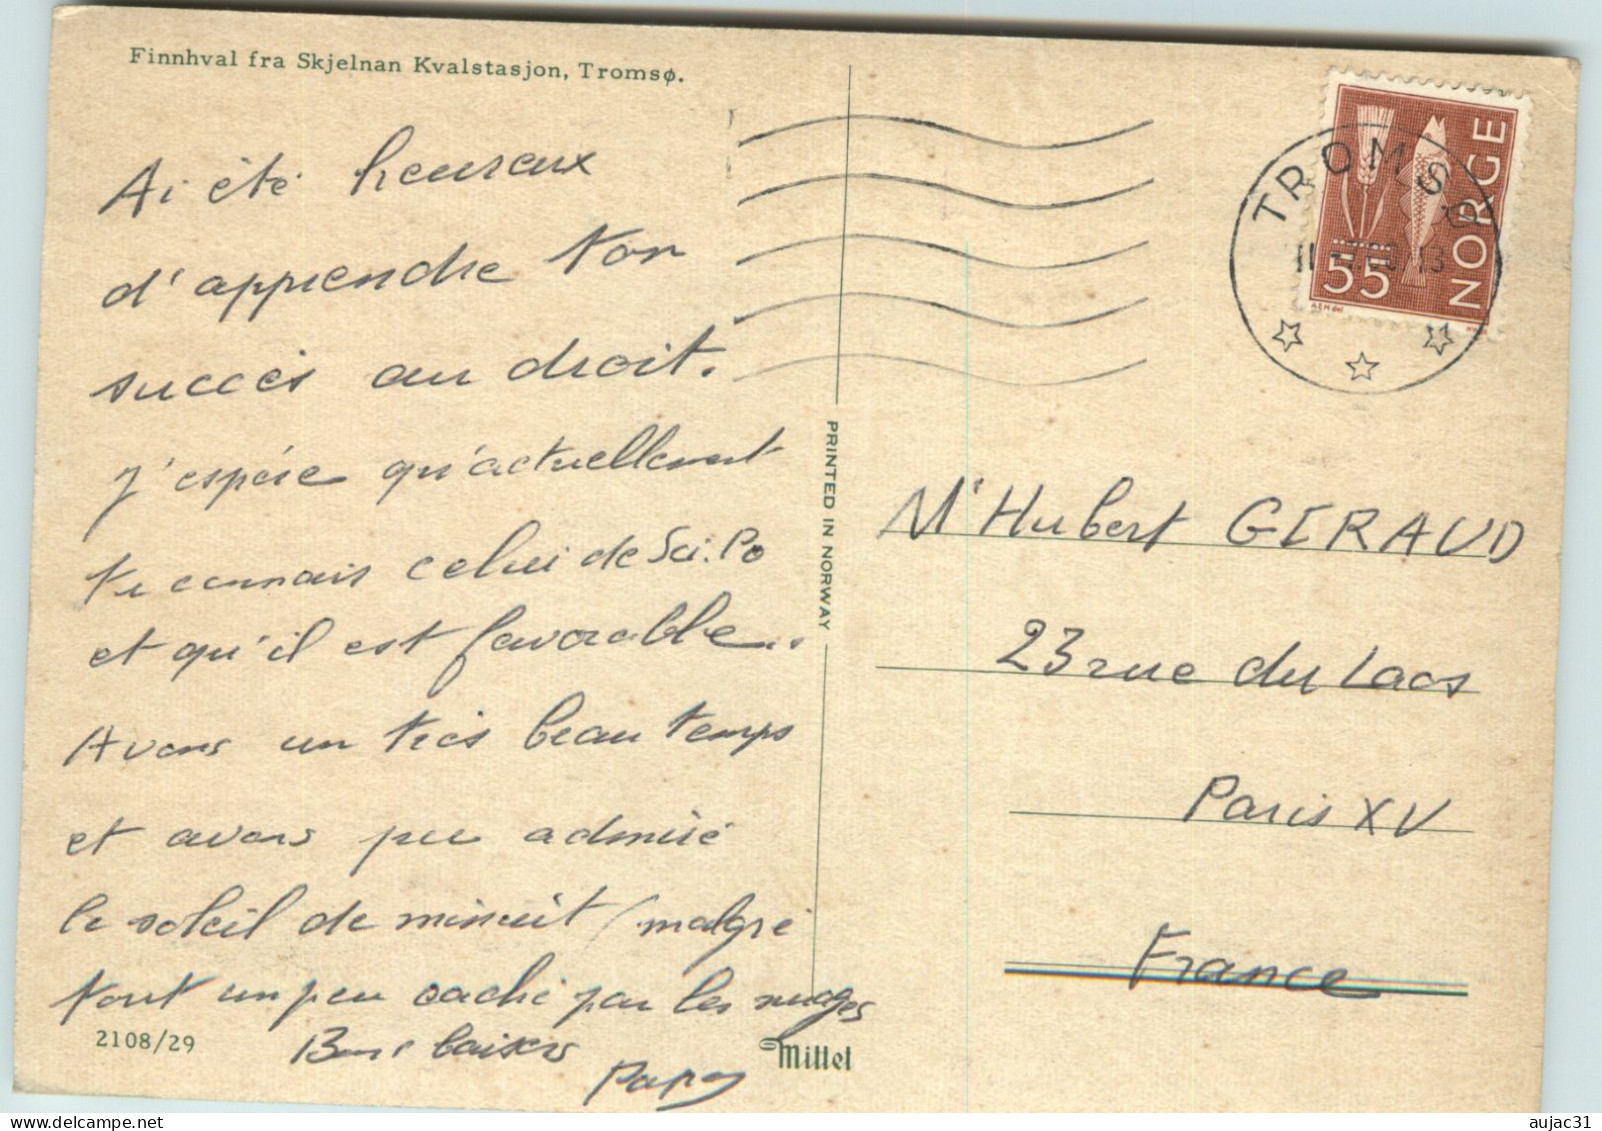 Finnhval fra Skjelnan Kvalstasjon, Tromsø.
Ai été heureux
d'apprendre ton
succès au droit.
J'espère qu'actuellement
tu connais celui de Sci. Po
et qu'il est favorable..
Avons un très beau temps
et avons pu admiré
le soleil de minuit (malgré
tout un peu caché par les nuages
Bons baisers
Papy
2108/29
Mittet
PRINTED IN NORWAY
TROMSØ
NORGE
55
Mr Hubert GIRAUD
23 rue du Laos
Paris XV
France
delcampe.net
aujac31